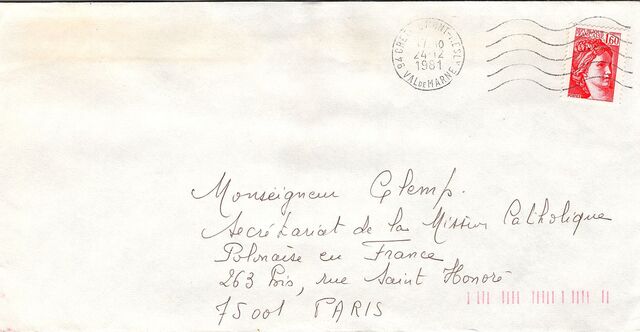 94 CRETEIL MONT-MESLY
24-12
1981
VAL DE MARNE
1,60
Monseigneur Glemp.
Secrétariat de la Mission Catholique
Polonaise en France
263 bis, rue Saint Honoré
75001 PARIS